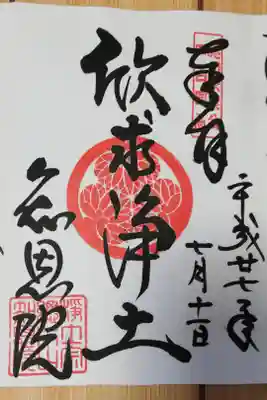 奉拝
平成廿七年
七月十一日
欣求浄土
知恩院